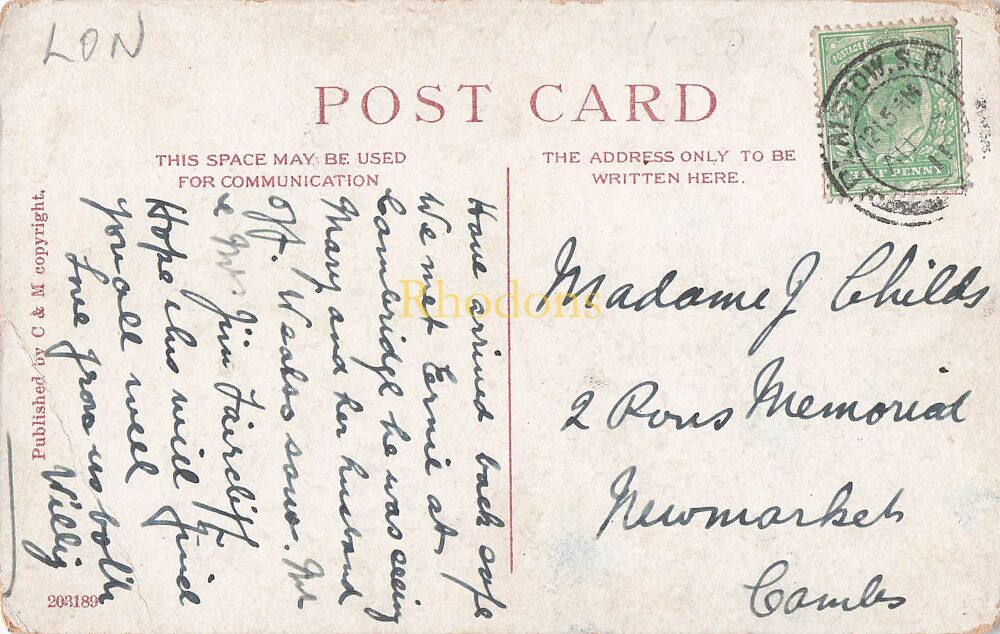 LON
POST CARD
THIS SPACE MAY BE USED
FOR COMMUNICATION
THE ADDRESS ONLY TO BE
WRITTEN HERE.
HALF PENNY
POSTAGE
PLAISTOW. S.O.
12.15 PM
11
Have arrived back safe
We met Ernie at
Cambridge he was seeing
Mary and her husband
off. We also saw. Mr
& Mrs Jim Faircliff
Hope this will find
you all well
Love from us both
Willy
Madame J Childs
2 Rous Memorial
Newmarket
Cambs
Published by C & M copyright.
203189
Rhodons